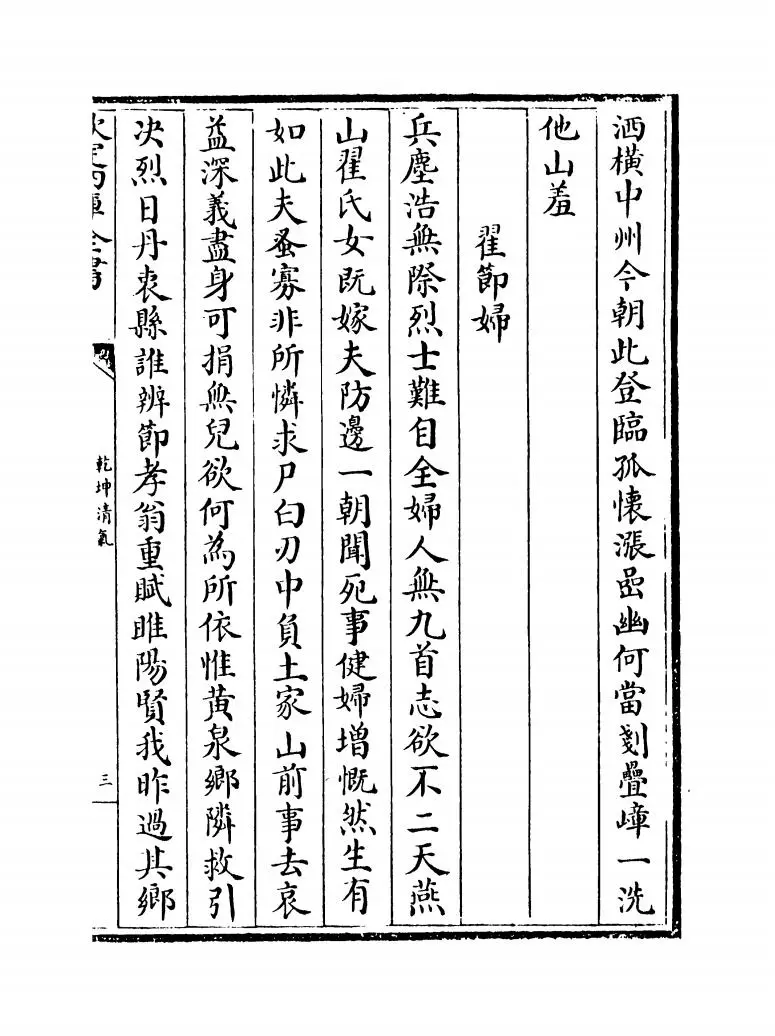 洒横中州今朝此登臨孤懷漲嵒幽何當剗疊嶂一洗
他山羞
翟節婦
兵塵浩無際烈士難自全婦人無九首志欲不二天燕
山翟氏女既嫁夫防邊一朝聞死事健婦增慨然生有
如此夫蚤寡非所憐求尸白刃中負土家山前事去哀
益深義盡身可捐無兒欲何為所依惟黄泉鄉隣救引
决烈日丹衷縣誰辨節孝翁重賦睢陽賢我昨過其鄉
欽定四庫全書
乾坤清氣
三